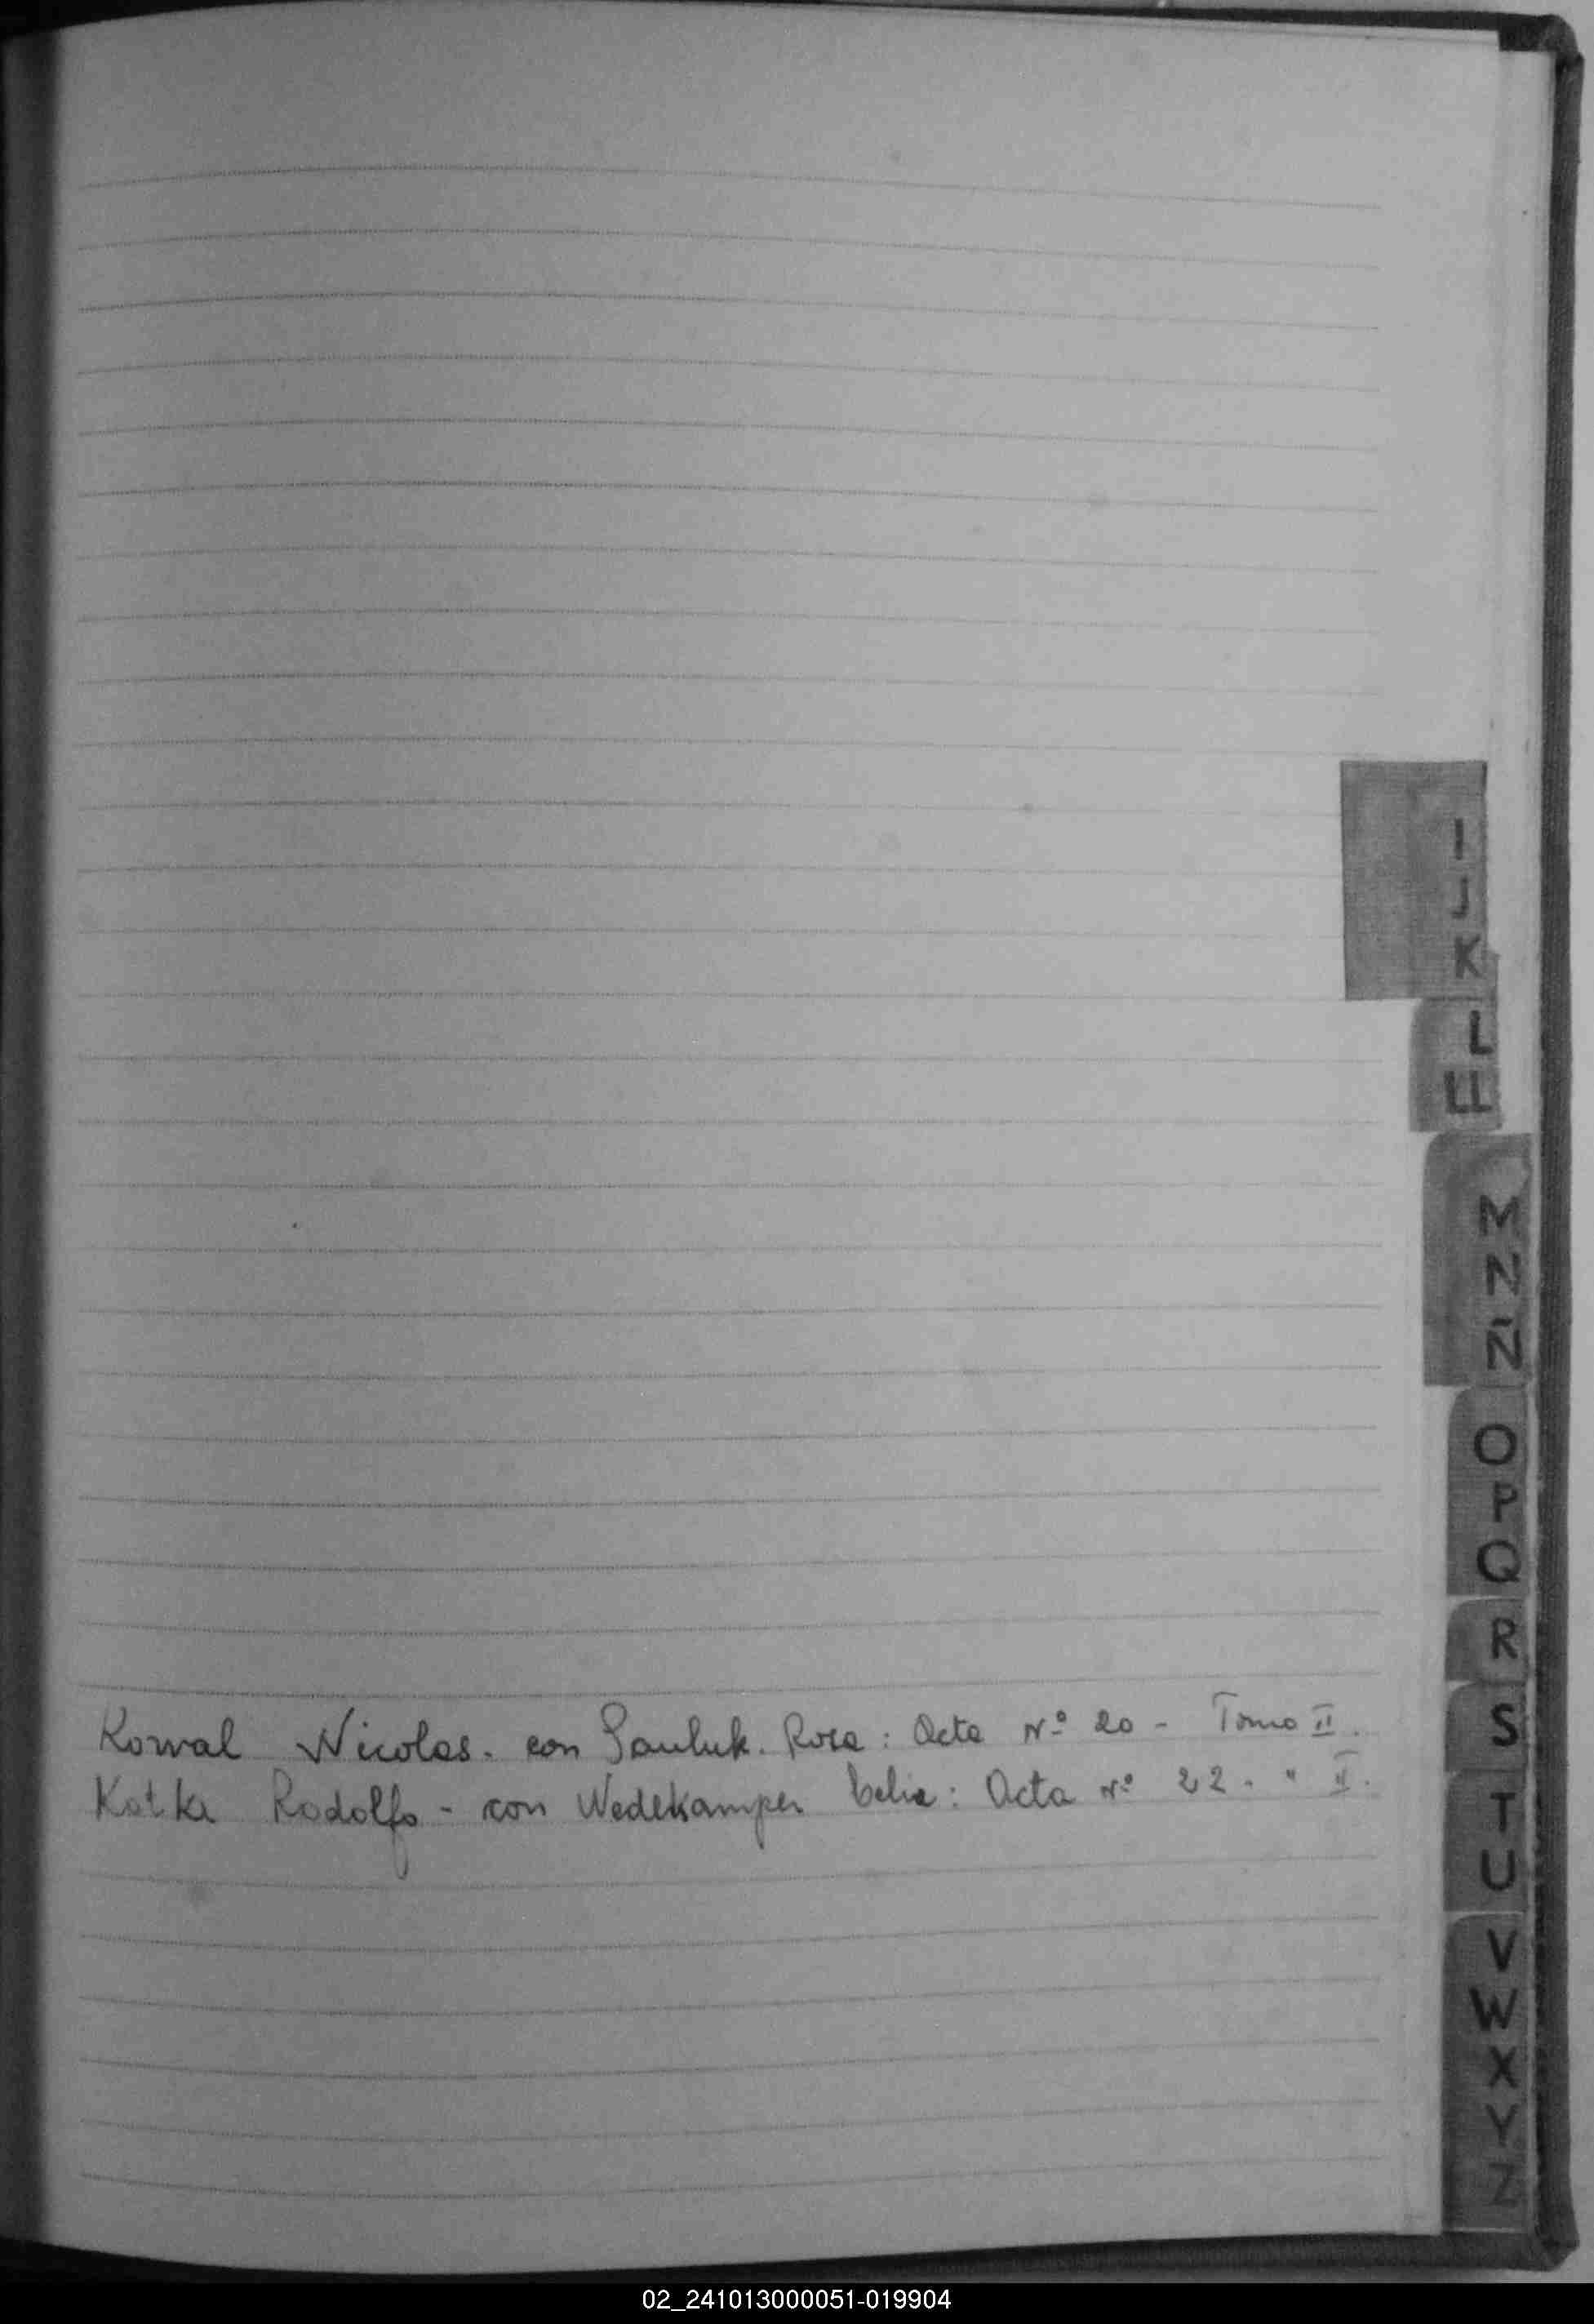 Kowal Nicolas. con Pauluk. Rosa: Acta Nº 20 - Tomo II.
Katka Rodolfo - con Wedekamper Celia: Acta Nº 22 - " II.
I
J
K
L
LL
M
N
Ñ
O
P
Q
R
S
T
U
V
W
X
Y
Z
02_241013000051-019904